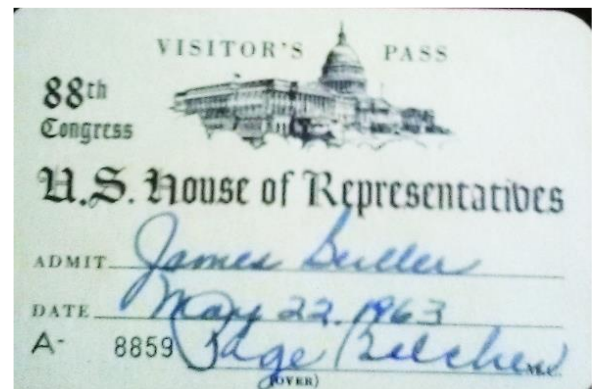 VISITOR'S PASS
88th
Congress
U.S. House of Representatives
ADMIT James Butler
DATE May 22. 1963
A- 8859 Page Belcher M.C.
(OVER)